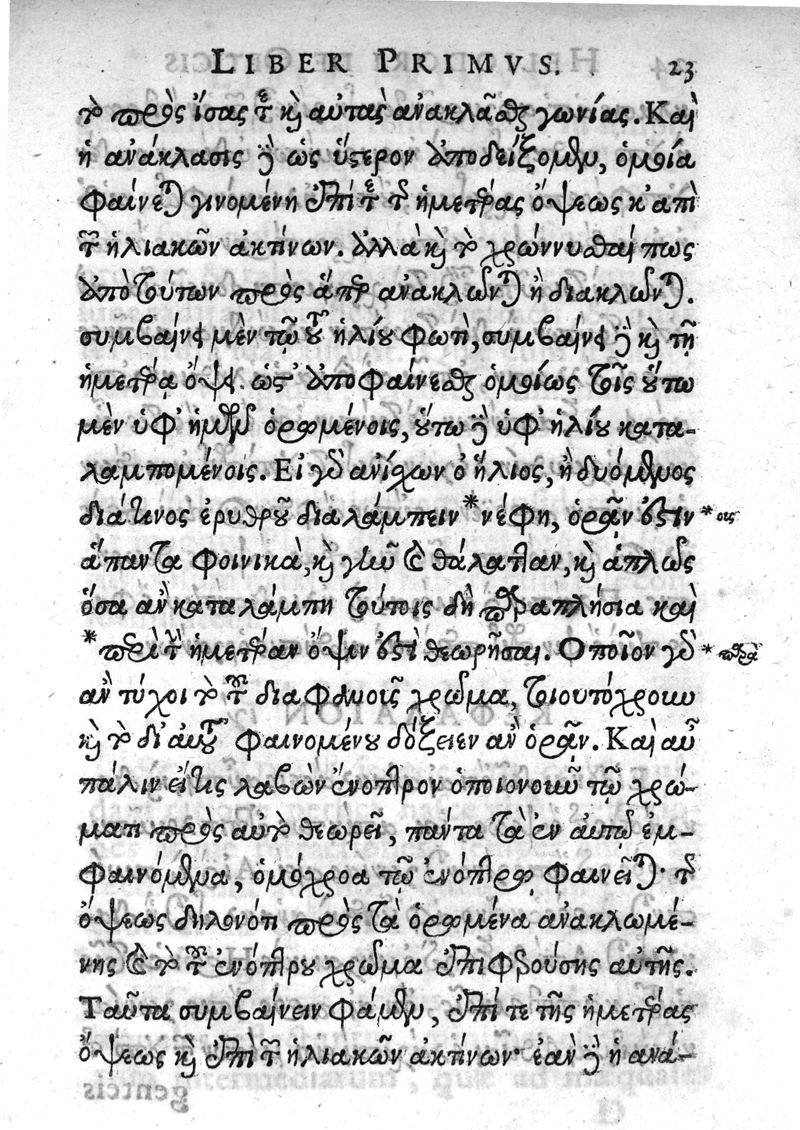 LIBER PRIMVS. 23
τὸ πρὸς ἴσας τὲ καὶ αὐτὰς ἀνακλᾶσθαι γωνίας. Καὶ
ἡ ἀνάκλασις δὲ ὡς ὕστερον ἀποδείξομεν, ὁμοία
φαίνεται γινομένη ἐπί τε τῆς ἡμετέρας ὄψεως κἀπὶ
τῶν ἡλιακῶν ἀκτίνων. ἀλλὰ καὶ τὸ χρώννυσθαί πως
ἀπὸ τούτων πρὸς ἅπερ ἀνακλῶνται ἢ διακλῶνται.
συμβαίνει μὲν τῷ τοῦ ἡλίου φωτὶ, συμβαίνει δὲ καὶ τῇ
ἡμετέρᾳ ὄψει. ὡς ἀποφαίνεσθαι ὁμοίως τοῖς οὕτω
μὲν ὑφ' ἡμῶν ὁρωμένοις, οὕτω δὲ ὑφ' ἡλίου κατα-
λαμπομένοις. Εἰ γὰρ ἀνίσχων ὁ ἥλιος, ἢ δυόμενος
διά τινος ἐρυθροῦ διαλάμπειν * νέφη, ὁρᾶν ἔστιν * οις
ἅπαντα φοινικὰ, καὶ γῆν καὶ θάλατταν, καὶ ἁπλῶς
ὅσα ἂν καταλάμπῃ τούτοις δὴ παραπλήσια καὶ
* περὶ τὴν ἡμετέραν ὄψιν ἔστι θεωρῆσαι. Ὁποῖον γὰρ * παρα
ἂν τύχοι τὸ τοῦ διαφανοῦς χρῶμα, τοιουτόχροιν
καὶ τὸ δι' αὐτοῦ φαινομένου δόξειεν ἂν ὁρᾷν. Καὶ αὖ
πάλιν εἴ τις λαβὼν ἔνοπτρον ὁποιονοῦν τῷ χρώ-
ματι πρὸς αὐτὸ θεωρεῖ, πάντα τὰ ἐν αὐτῷ ἐμ-
φαινόμενα, ὁμόχροα τῷ ἐνόπτρῳ φαινεῖται· τῆς
ὄψεως δηλονότι πρὸς τὰ ὁρώμενα ἀνακλωμέ-
νης καὶ τὸ τοῦ ἐνόπτρου χρῶμα ἐπιφερούσης αὐτῆς.
Ταῦτα συμβαίνειν φάμεν, ἐπί τε τῆς ἡμετέρας
ὄψεως καὶ ἐπὶ τῶν ἡλιακῶν ἀκτίνων· ἐὰν δὲ ἡ ἀνά-